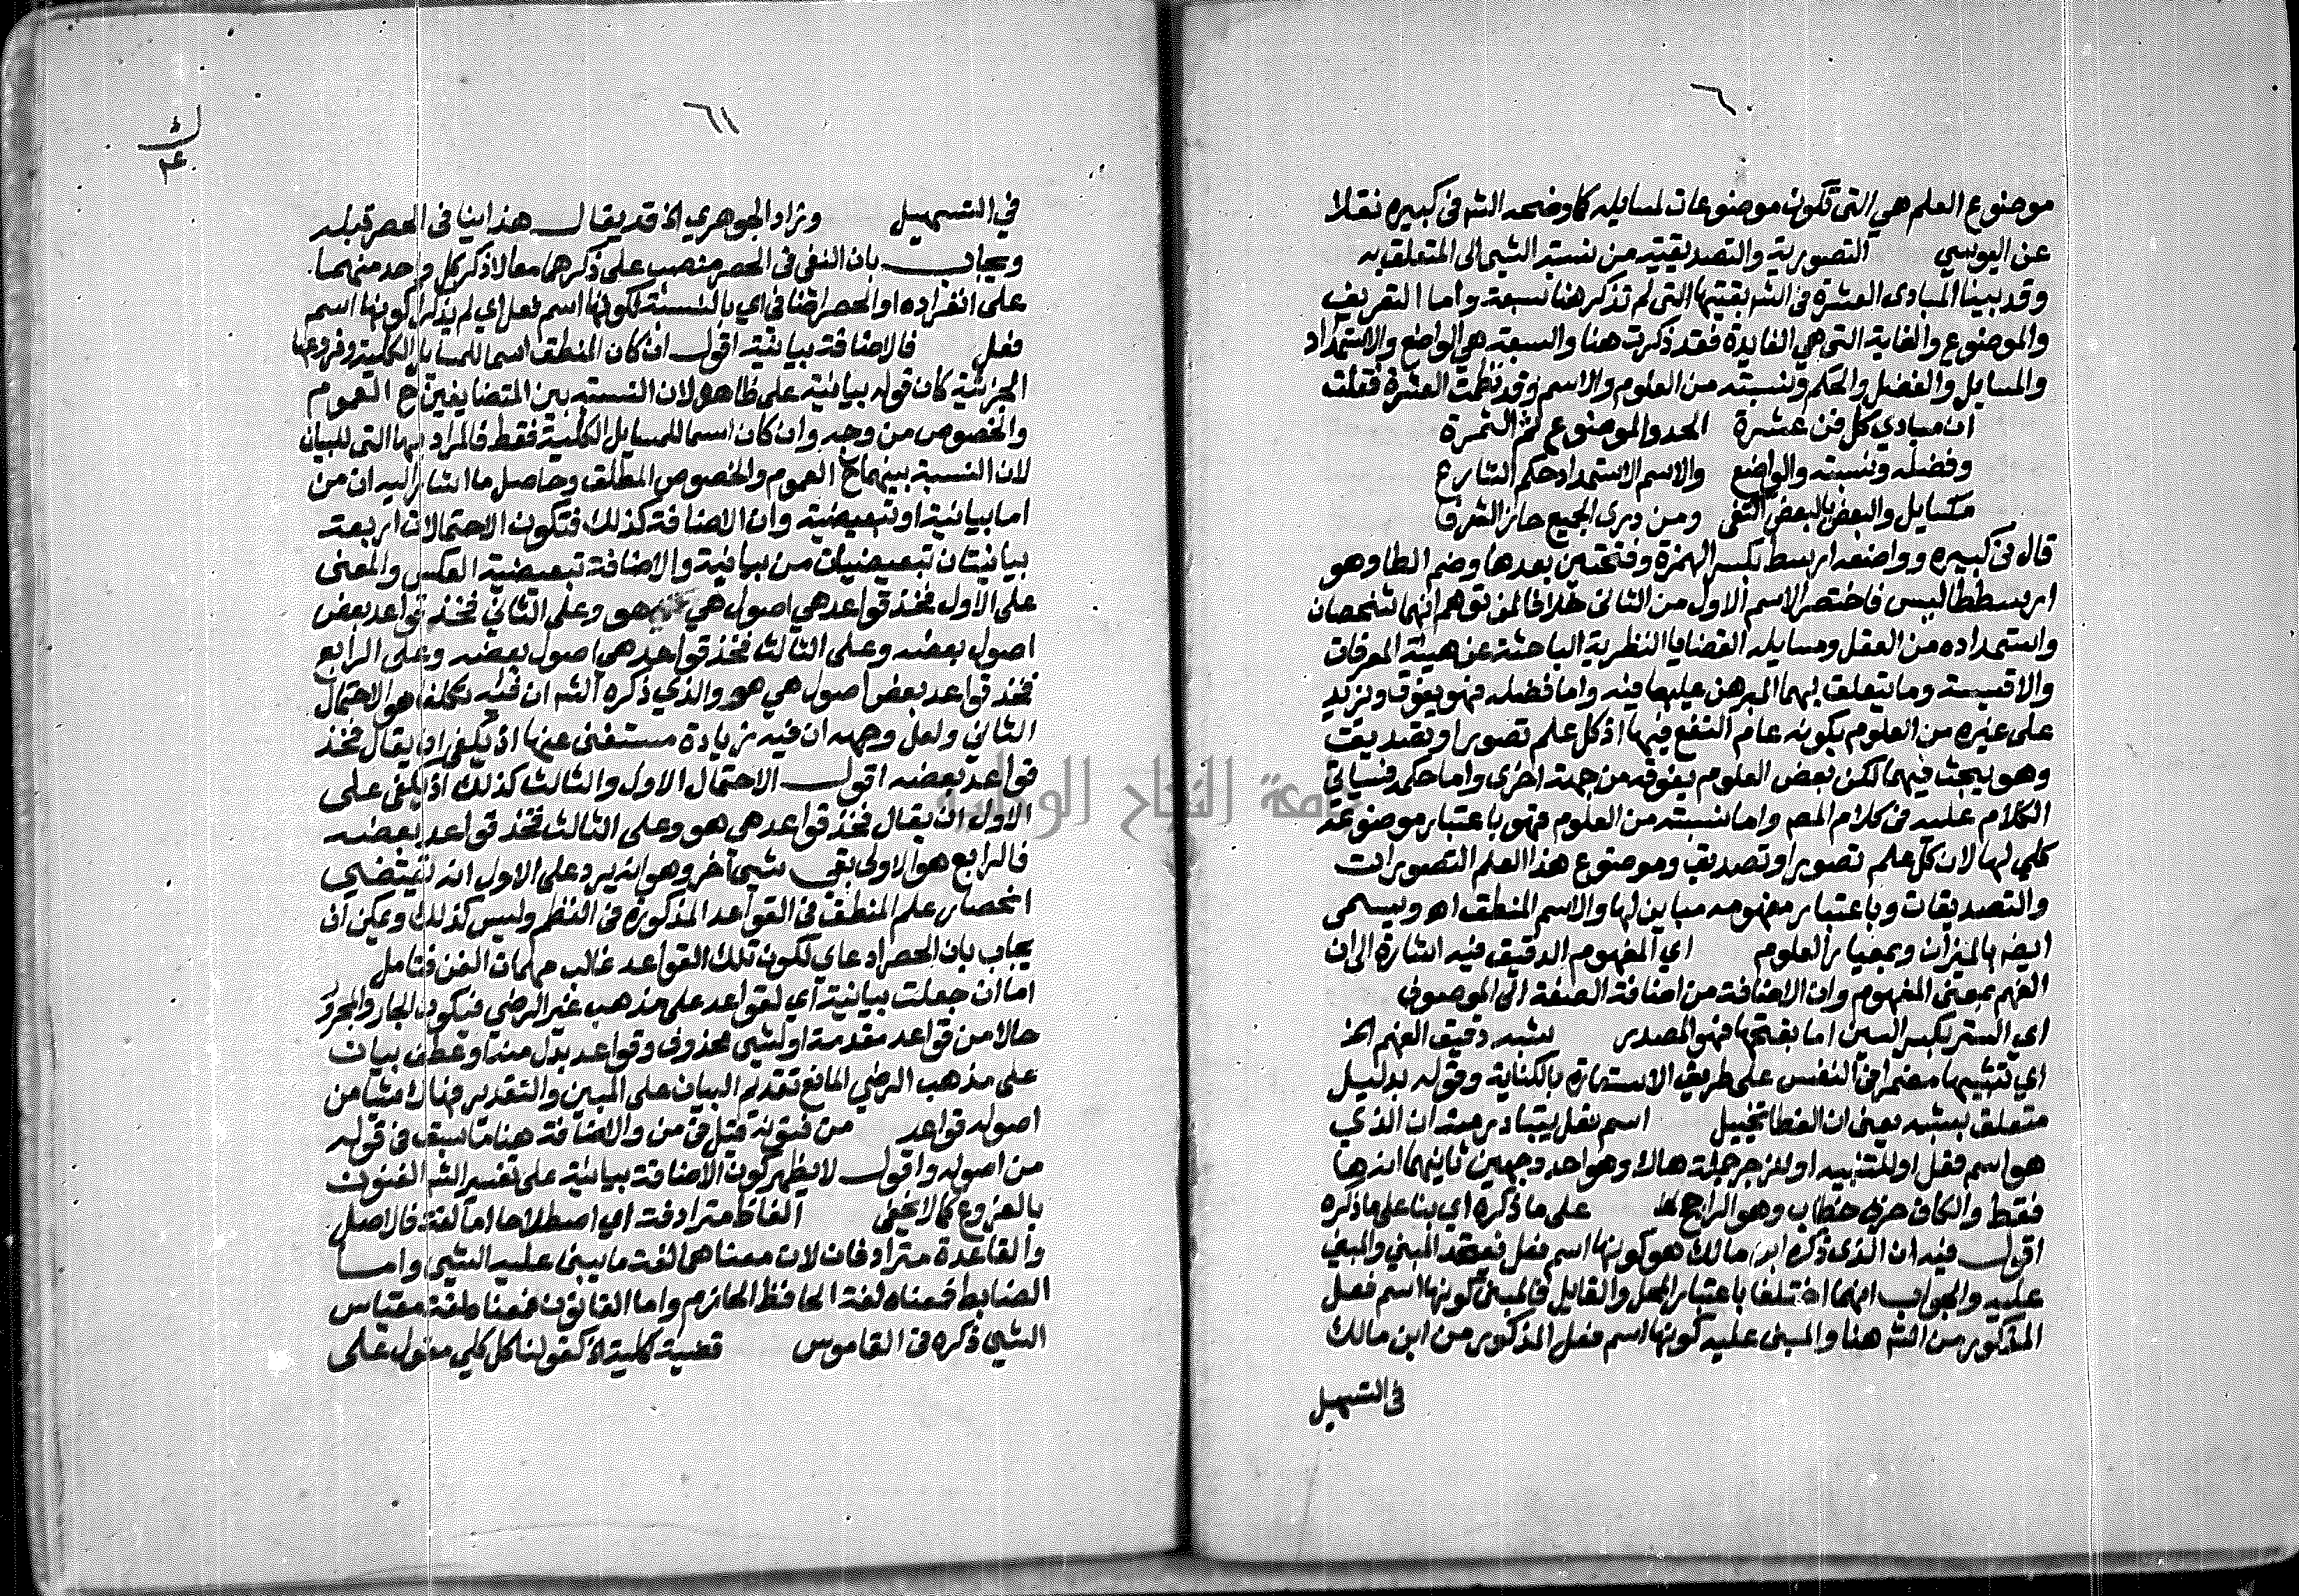 ٦
موضوع العلم هي التي تكون موضوعات لمسايله كما وضحه الشه في كبيره نقلا
عن اليوسي التصورية والتصديقية من نسبة الشي الى المتعلق به
وقد بينا المبادى العشرة في الشه بقيتها التي لم تذكر هنا سبعة واما التعريف
والموضوع والغاية التي هي الفايدة فقد ذكرت هنا والسبعة هي الواضع والاستمداد
والمسايل والفضل والحكم ونسبته من العلوم والاسم وقد نظمت العشرة فقلت
ان مبادي كل فن عشرة الحد والموضوع ثم الثمرة
وفضله ونسبته والواضع والاسم الاستمداد حكم الشارع
مسايل والبعض بالبعض اكتفى ومن درى الجميع حاز الشرفا
قال في كبيره وواضعه ارسط بكسر الهمزة وفتحتين بعدها وضم الطا وهو
ارسططاليس فاختصر الاسم الاول من الثاني خلافا لمن توهم انهما شخصان
واستمداده من العقل ومسايله القضايا النظرية الباحثة عن هيئة المعرفات
والاقيسة وما يتعلق بهما المبرهن عليها فيه واما فضله فهو يفوق ويزيد
على غيره من العلوم بكونه عام النفع فيها اذ كل علم تصور او تصديق
وهو يبحث فيهما لكن بعض العلوم يفوقه من جهة اخرى واما حكمه فسياتي
الكلام عليه في كلام المصه واما نسبته من العلوم فهو باعتبار موضوعه
كلي لها لان كل علم تصور او تصديق وموضوع هذا العلم التصورات
والتصديقات وباعتبار مفهومه مباين لها والاسم المنطق اه ويسمى
ايضه بالميزان وبمعيار العلوم اي المفهوم الدقيق فيه اشارة الى ان
الفهم بمعنى المفهوم وان الاضافة من اضافة الصفة الى الموصوف
اي الستر بكسر السين اما بفتحها فهو المصدر شبه دقيق الفهم الخ
اي تشبيها مضمرا في النفس على طريق الاستعارة بالكناية وقوله بدليل
متعلق بيشبه يعني ان الغطا تخييل اسم فعل يتبادر منه ان الذي
هو اسم فعل او للتنبيه او للزجر جملة هاك وهو احد وجهين ثانيهما انه ها
فقط والكاف حرف خطاب وهو الراجح على ما ذكره اي بنا على ما ذكره
اقول فيه ان الذي ذكره ابن مالك هو كونها اسم فعل فيتحد المبني والمبني
عليه والجواب انهما اختلفا باعتبار المحل والقايل فالمبني كونها اسم فعل
المذكور من الشه هنا والمبني عليه كونها اسم فعل المذكور من ابن مالك
في التسهيل
١١
في التسهيل وزاد الجوهري الخ قد يقال هذا ينافي الحصر قبله
ويجاب بان النفي في الحصر منصب على ذكرهما معا لا ذكر كل واحد منهما
على انفراده او الحصر اضافي اي بالنسبة لكونها اسم فعل اي لم يذكر الا كونها اسم
فعل فالاضافة بيانية اقول ان كان المنطق اسما للمسايل الكلية وفروعها
الجزئية كان قوله بيانية على ظاهره لان النسبة بين المتضايفين ح العموم
والخصوص من وجه وان كان اسما للمسايل الكلية فقط فالمراد بها التي للبيان
لان النسبة بينهما ح العموم والخصوص المطلق وحاصل ما اشار اليه ان من
اما بيانية او تبعيضية وان الاضافة كذلك فتكون الاحتمالات اربعة
بيانيتان تبعيضيتان من بيانية والاضافة تبعيضية العكس والمعنى
على الاول فخذ قواعد هي اصول هي هو وعلى الثاني فخذ قواعد بعض
اصول بعضه وعلى الثالث فخذ قواعد هي اصول بعضه وعلى الرابع
فخذ قواعد بعض اصول هي هو والذي ذكره الشه ان فيه تكلفا هو الاحتمال
الثاني ولعل وجهه ان فيه زيادة مستغنى عنها اذ يكفي ان يقال فخذ
قواعد بعضه اقول الاحتمال الاول والثالث كذلك اذ يكفي على
الاول ان يقال فخذ قواعد هي هو وعلى الثالث فخذ قواعد بعضه
فالرابع هو الاولى بقي شي آخر وهو انه يرد على الاول انه يقتضي
انحصار علم المنطق في القواعد المذكورة في النظم وليس كذلك ويمكن ان
يجاب بان الحصر ادعاي لكون تلك القواعد غالب مهمات الفن فتامل
اما ان جعلت بيانية اي لقواعد على مذهب غير الرضي فيكون الجار والمجرور
حالا من قواعد مقدمة او لشي محذوف وقواعد بدل منه او عطف بيان
على مذهب الرضي المانع تقديم البيان على المبين والتقدير فهاك شيا من
اصوله قواعد من فنونه قيل في من والاضافة هنا ما سبق في قوله
من اصوله واقول لا يظهر كون الاضافة بيانية على تفسير الشه الفنون
بالفروع كما لا يخفى الفاظ مترادفة اي اصطلاحا اما لغة فالاصل
والقاعدة مترادفان لان معناهما لغة ما يبنى عليه الشي واما
الضابط فمعناه لغة الحافظ الحازم واما القانون فمعناه لغة مقياس
الشي ذكره في القاموس قضية كلية الخ كقولنا كل كلي مقول على
جامعة النجاح الوطنية